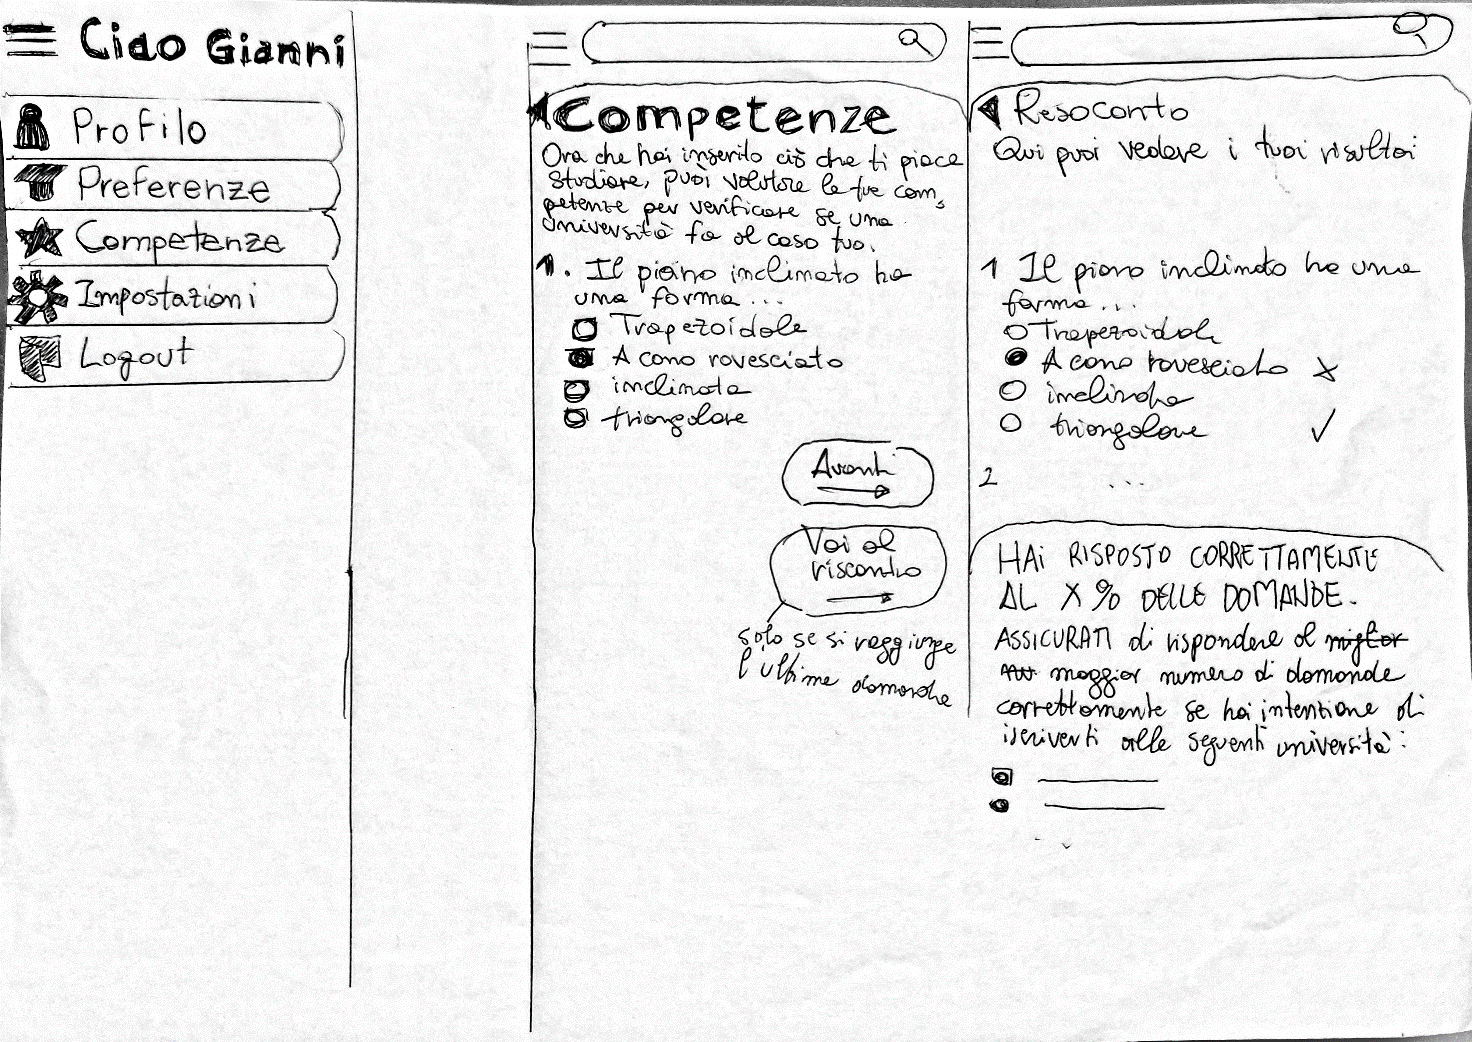 Ciao Gianni
Profilo
Preferenze
Competenze
Impostazioni
Logout
Competenze
Ora che hai inserito ciò che ti piace
studiare, puoi valutare le tue com,
petenze per verificare se una
università fa al caso tuo.
1. Il piano inclinato ha
una forma...
Trapezoidale
A cono rovesciato
inclinata
triangolare
Avanti
Vai al
riscontro
solo se si raggiunge
l'ultima domanda
Resoconto
Qui puoi vedere i tuoi risultai
1 Il piano inclinato ha una
forma...
Trapezoidale
A cono rovesciato x
inclinata
triangolare ✓
2 ...
HAI RISPOSTO CORRETTAMENTE
AL X % DELLE DOMANDE.
ASSICURATI di rispondere al miglior
maggior numero di domande
correttamente se hai intenzione di
iscriverti alle seguenti università: